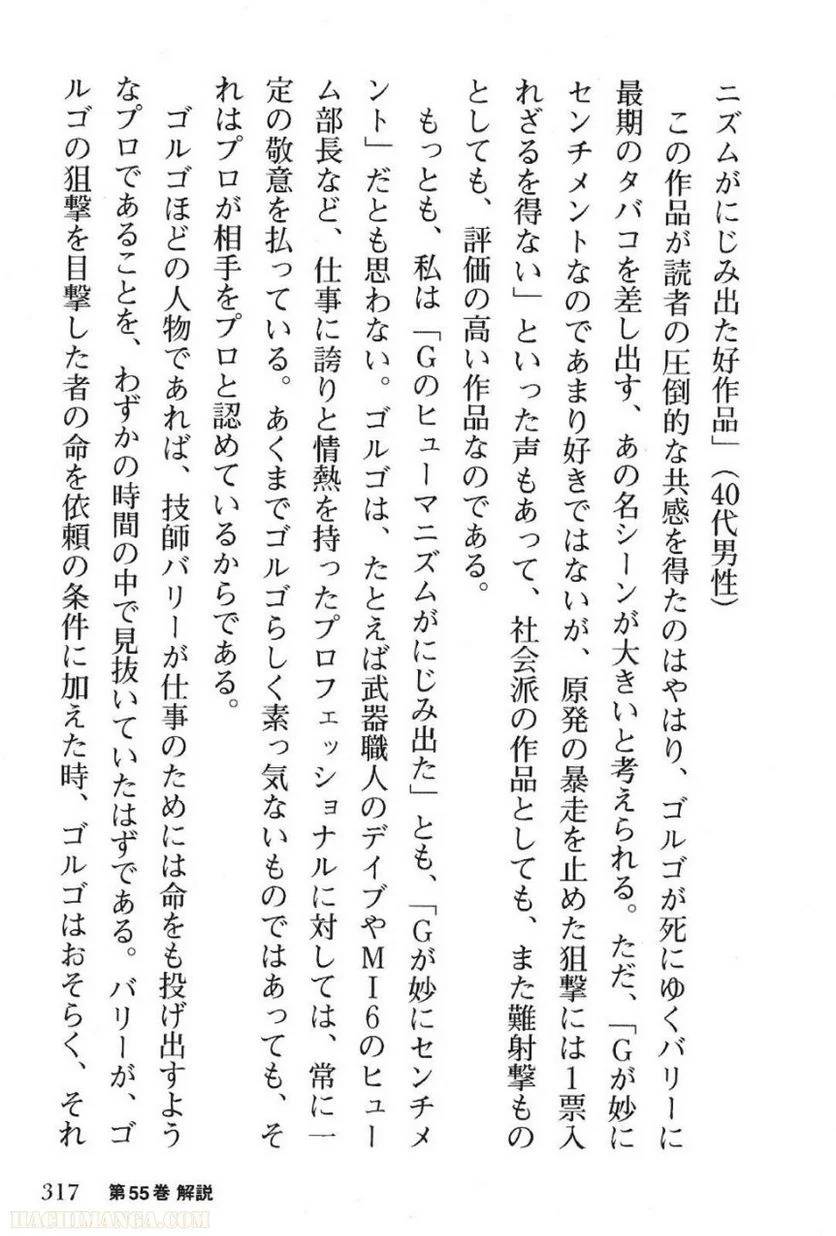 ニズムがにじみ出た好作品」（40代男性）
この作品が読者の圧倒的な共感を得たのはやはり、ゴルゴが死にゆくバリーに
最期のタバコを差し出す、あの名シーンが大きいと考えられる。ただ、「Gが妙に
センチメントなのであまり好きではないが、原発の暴走を止めた狙撃には1票入
れざるを得ない」といった声もあって、社会派の作品としても、また難射撃もの
としても、評価の高い作品なのである。
もっとも、私は「Gのヒューマニズムがにじみ出た」とも、「Gが妙にセンチメ
ント」だとも思わない。ゴルゴは、たとえば武器職人のデイブやMI6のヒュー
ム部長など、仕事に誇りと情熱を持ったプロフェッショナルに対しては、常に一
定の敬意を払っている。あくまでゴルゴらしく素っ気ないものではあっても、そ
れはプロが相手をプロと認めているからである。
ゴルゴほどの人物であれば、技師バリーが仕事のためには命をも投げ出すよう
なプロであることを、わずかの時間の中で見抜いていたはずである。バリーが、ゴ
ルゴの狙撃を目撃した者の命を依頼の条件に加えた時、ゴルゴはおそらく、それ
317 第55巻 解説
HACHIMANGA.COM